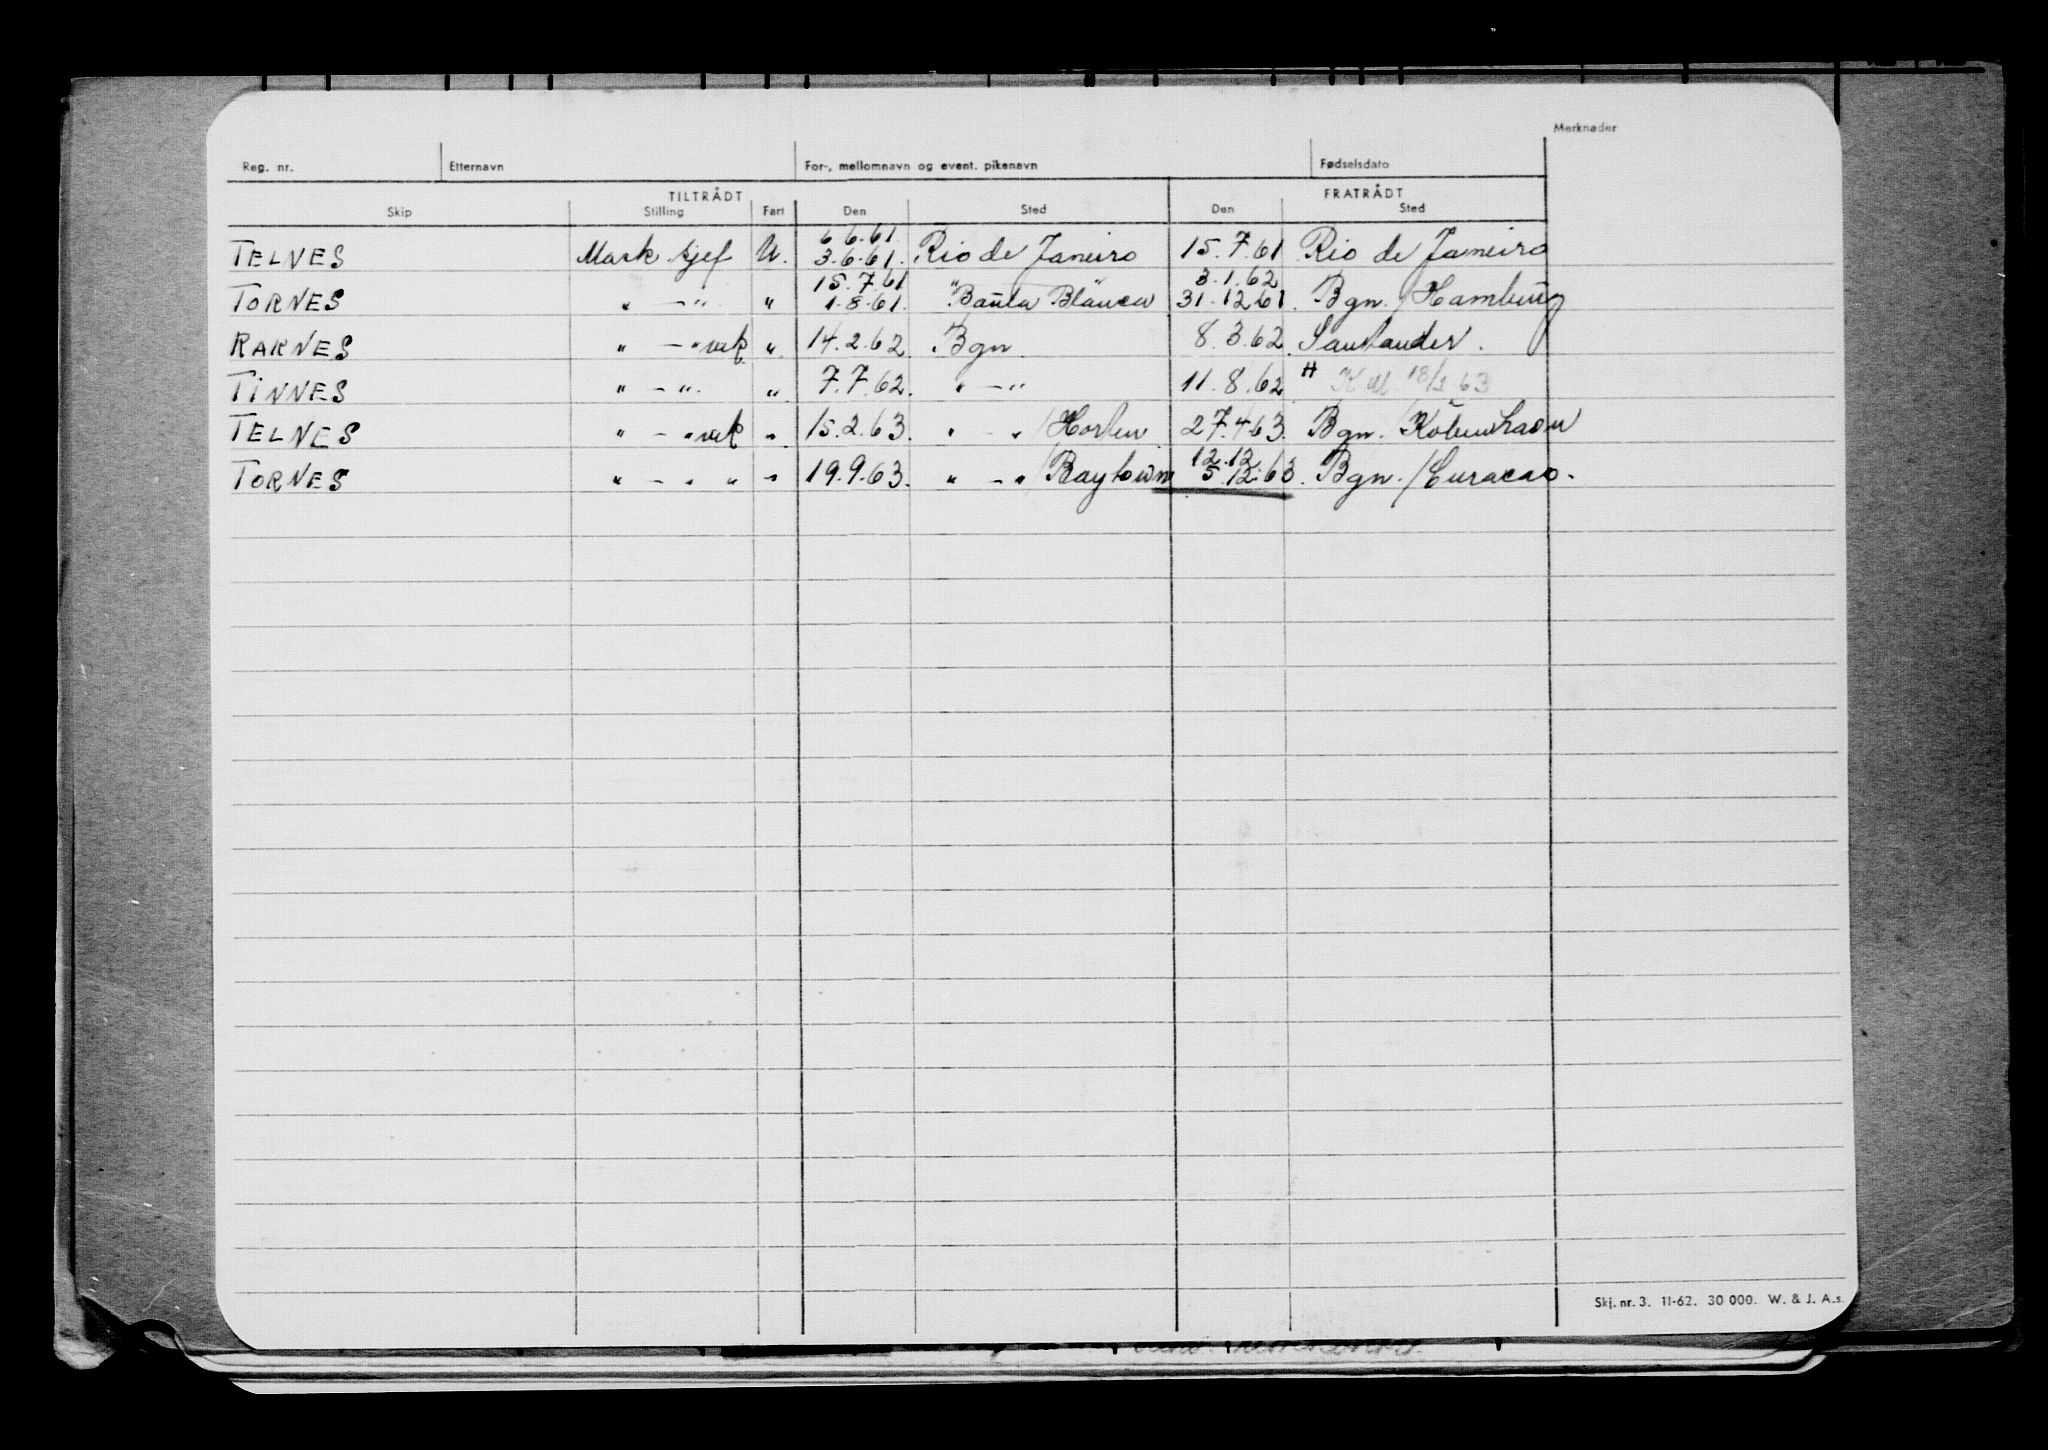 Merknader
Reg. nr. Etternavn For-, mellomnavn og event. pikenavn Fødselsdato
TILTRÅDT FRATRÅDT
Skip Stilling Fart Den Sted Den Sted
6.6.61
TELNES Mask sjef U. 3.6.61. Rio de Janeiro 15.7.61 Rio de Janeiro
15.7.61 " " 3.1.62
TORNES " - " " 1.8.61. Bahia Blanca 31.12.61. Bgn. / Hamburg
RAKNES " - " vik " 14.2.62. Bgn. 8.3.62. Santander.
TINNES " - " " 7.7.62. " - " 11.8.62 " 18/1-63
TELNES " - " vik " 15.2.63. " - " / Horten 27.4.63. Bgn. / København
12.12.
TORNES " - " " " 19.9.63. " - " / Baytown 5.12.63. Bgn. / Curacao.
Skj. nr. 3. 11-62. 30 000. W. & J. A.s.